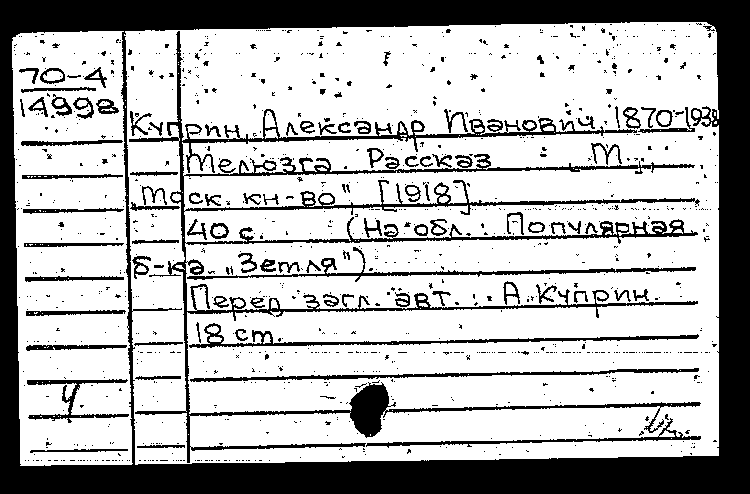 70-4
14998
Куприн, Александр Иванович, 1870-1938
Мелюзга. Рассказ М.,
"Моск. кн-во", [1918]
40 с. (На обл.: Популярная
б-ка "Земля").
Перед загл. авт.: А. Куприн.
18 ст.
Ч.